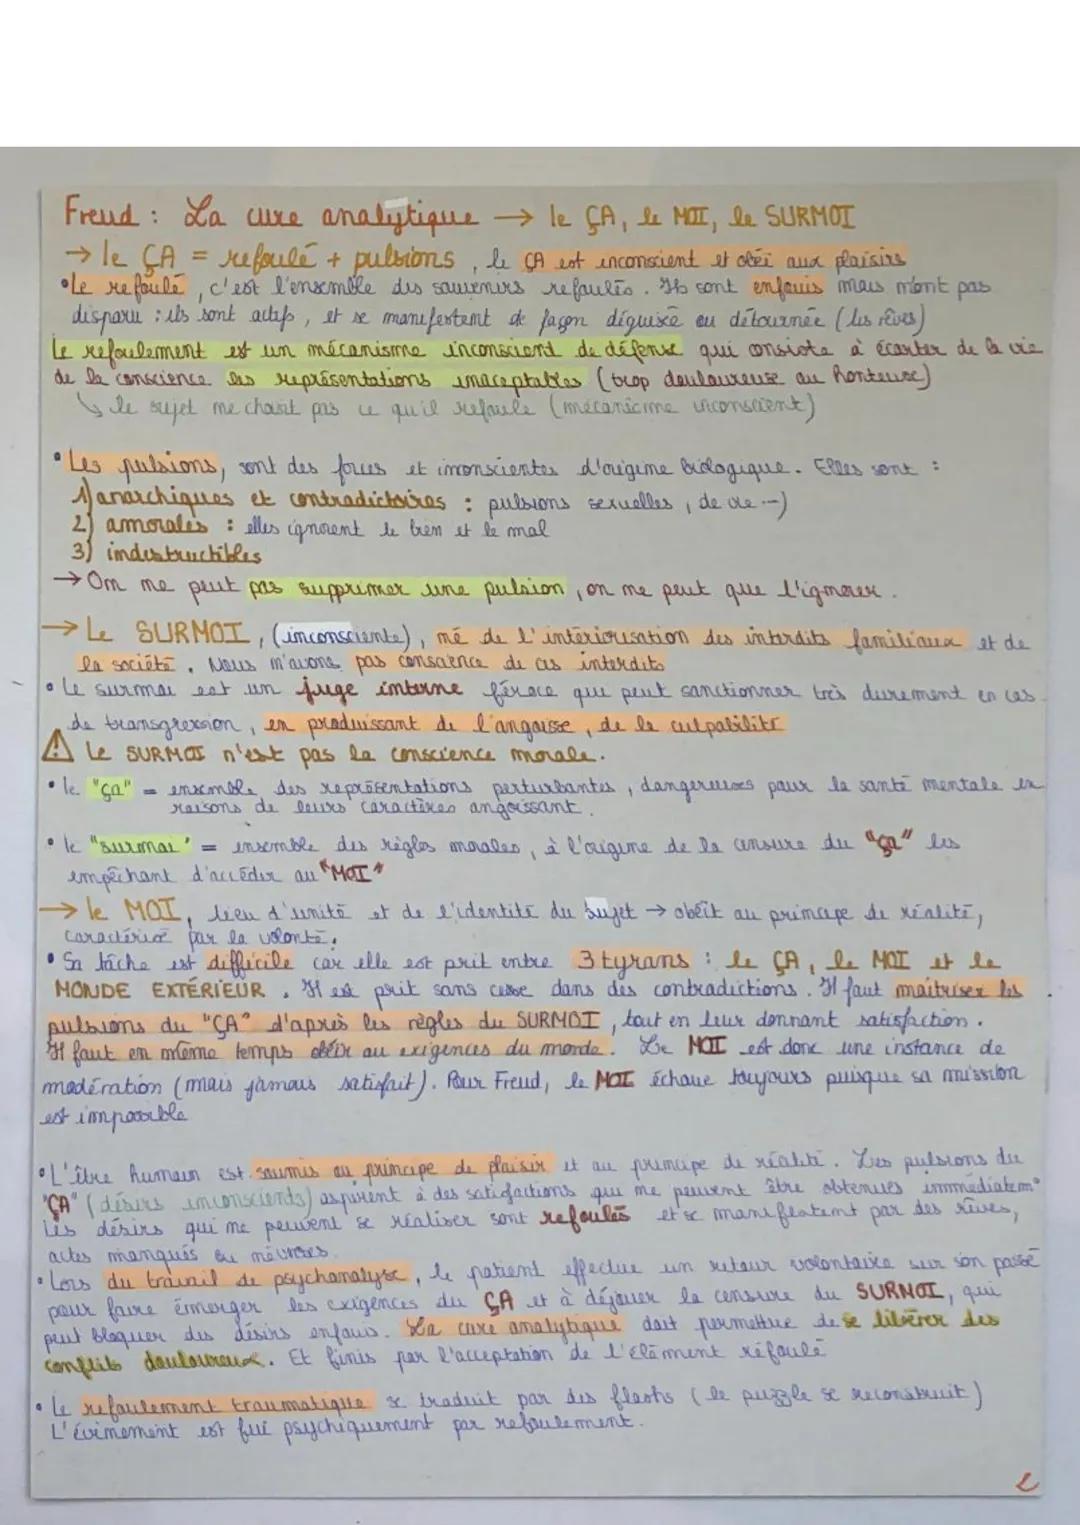 Freud : La cure analytique → le ÇA, le MOI, le SURMOI
→ le ÇA = refoulé + pulsions, le ÇA est inconscient et obéi aux plaisirs
• Le refoulé, c'est l'ensemble des souvenirs refoulés. Ils sont enfouis mais n'ont pas
disparu : ils sont actifs, et se manifestent de façon déguisée ou détournée (les rêves)
Le refoulement est un mécanisme inconscient de défense qui consiste à écarter de la vie
de la conscience les représentations inaceptables (trop douloureuse ou honteuse)
↳ le sujet ne choisit pas ce qu'il refoule (mécanisme inconscient)
• Les pulsions, sont des forces et inconscientes d'origine biologique. Elles sont :
1) anarchiques et contradictoires : pulsions sexuelles, de vie ...)
2) amorales : elles ignorent le bien et le mal
3) indestructibles
→ On ne peut pas supprimer une pulsion, on ne peut que l'ignorer.
→ Le SURMOI, (inconsciente), né de l'intériorisation des interdits familiaux et de
la société. Nous n'avons pas conscience de ces interdits
• Le surmoi est un juge interne féroce qui peut sanctionner très durement en cas
de transgression, en produissant de l'angoisse, de la culpabilité
⚠ Le SURMOI n'est pas la conscience morale.
• le "ça" = ensemble des représentations perturbantes, dangereuses pour la santé mentale en
raisons de leurs caractères angoissant.
• le "surmoi" = ensemble des règles morales, à l'origine de la censure du "ça" les
empêchant d'accéder au "MOI"
→ le MOI, lieu d'unité et de l'identité du sujet → obéit au principe de réalité,
caractérisé par la volonté.
• Sa tâche est difficile car elle est prit entre 3 tyrans : le ÇA, le MOI et le
MONDE EXTÉRIEUR. Il est prit sans cesse dans des contradictions. Il faut maîtriser les
pulsions du "ÇA" d'après les règles du SURMOI, tout en leur donnant satisfaction.
Il faut en même temps obéir au exigences du monde. Le MOI est donc une instance de
modération (mais jamais satisfait). Pour Freud, le MOI échoue toujours puisque sa mission
est impossible
• L'être humain est soumis au principe de plaisir et au principe de réalité. Les pulsions du
"ÇA" (désirs inconscients) aspirent à des satisfactions qui ne peuvent être obtenues immédiatem°
Les désirs qui ne peuvent se réaliser sont refoulés et se manifestent par des rêves,
actes manqués ou névroses.
• Lors du travail de psychanalyse, le patient effectue un retour volontaire sur son passé
pour faire émerger les exigences du ÇA et à déjouer la censure du SURMOI, qui
peut bloquer des désirs enfouis. La cure analytique doit permettre de se libérer des
conflits douloureux. Et finis par l'acceptation de l'élément refoulé
• Le refoulement traumatique se traduit par des flashs (le puzzle se reconstruit)
L'évènement est fui psychiquement par refoulement.
2